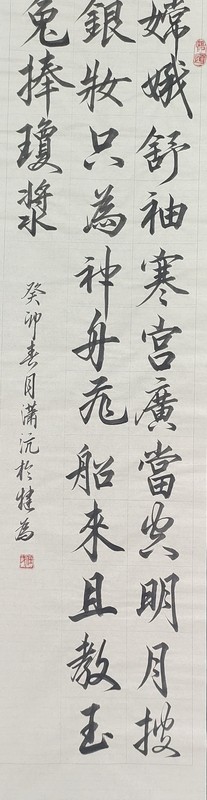 嫦娥舒袖寒宮廣當空明月披
銀妝只為神舟飛船來且教玉
兔捧瓊漿
癸卯春月瀟沅於犍為